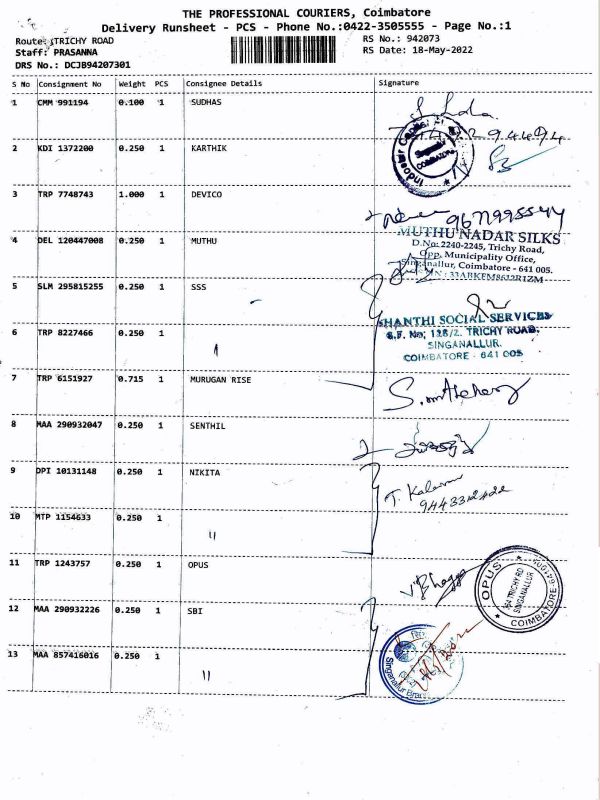 THE PROFESSIONAL COURIERS, Coimbatore
Delivery Runsheet - PCS - Phone No.:0422-3505555 - Page No.:1
Route: TRICHY ROAD RS No.: 942073
Staff: PRASANNA RS Date: 18-May-2022
DRS No.: DCJB94207301
S No Consignment No Weight PCS Consignee Details Signature
1 CMM 991194 0.100 1 SUDHAS
2 KDI 1372200 0.250 1 KARTHIK
Indostar Capital
Singanallur
COIMBATORE
3 TRP 7748743 1.000 1 DEVICO
9677995544
4 DEL 120447008 0.250 1 MUTHU
MUTHU NADAR SILKS
D.No: 2240-2245, Trichy Road,
Opp. Municipality Office,
Singanallur, Coimbatore - 641 005.
5 SLM 295815255 0.250 1 SSS
SHANTHI SOCIAL SERVICES
S.F. No; 118/2. TRICHY ROAD.
SINGANALLUR.
COIMBATORE - 641 005
6 TRP 8227466 0.250 1
7 TRP 6151927 0.715 1 MURUGAN RISE
8 MAA 290932047 0.250 1 SENTHIL
9 DPI 10131148 0.250 1 NIKITA
10 MTP 1154633 0.250 1 "
11 TRP 1243757 0.250 1 OPUS
OPUS
TRICHY RD
SINGANALLUR
COIMBATORE
12 MAA 290932226 0.250 1 SBI
Singanallur Branch
13 MAA 857416016 0.250 1 "